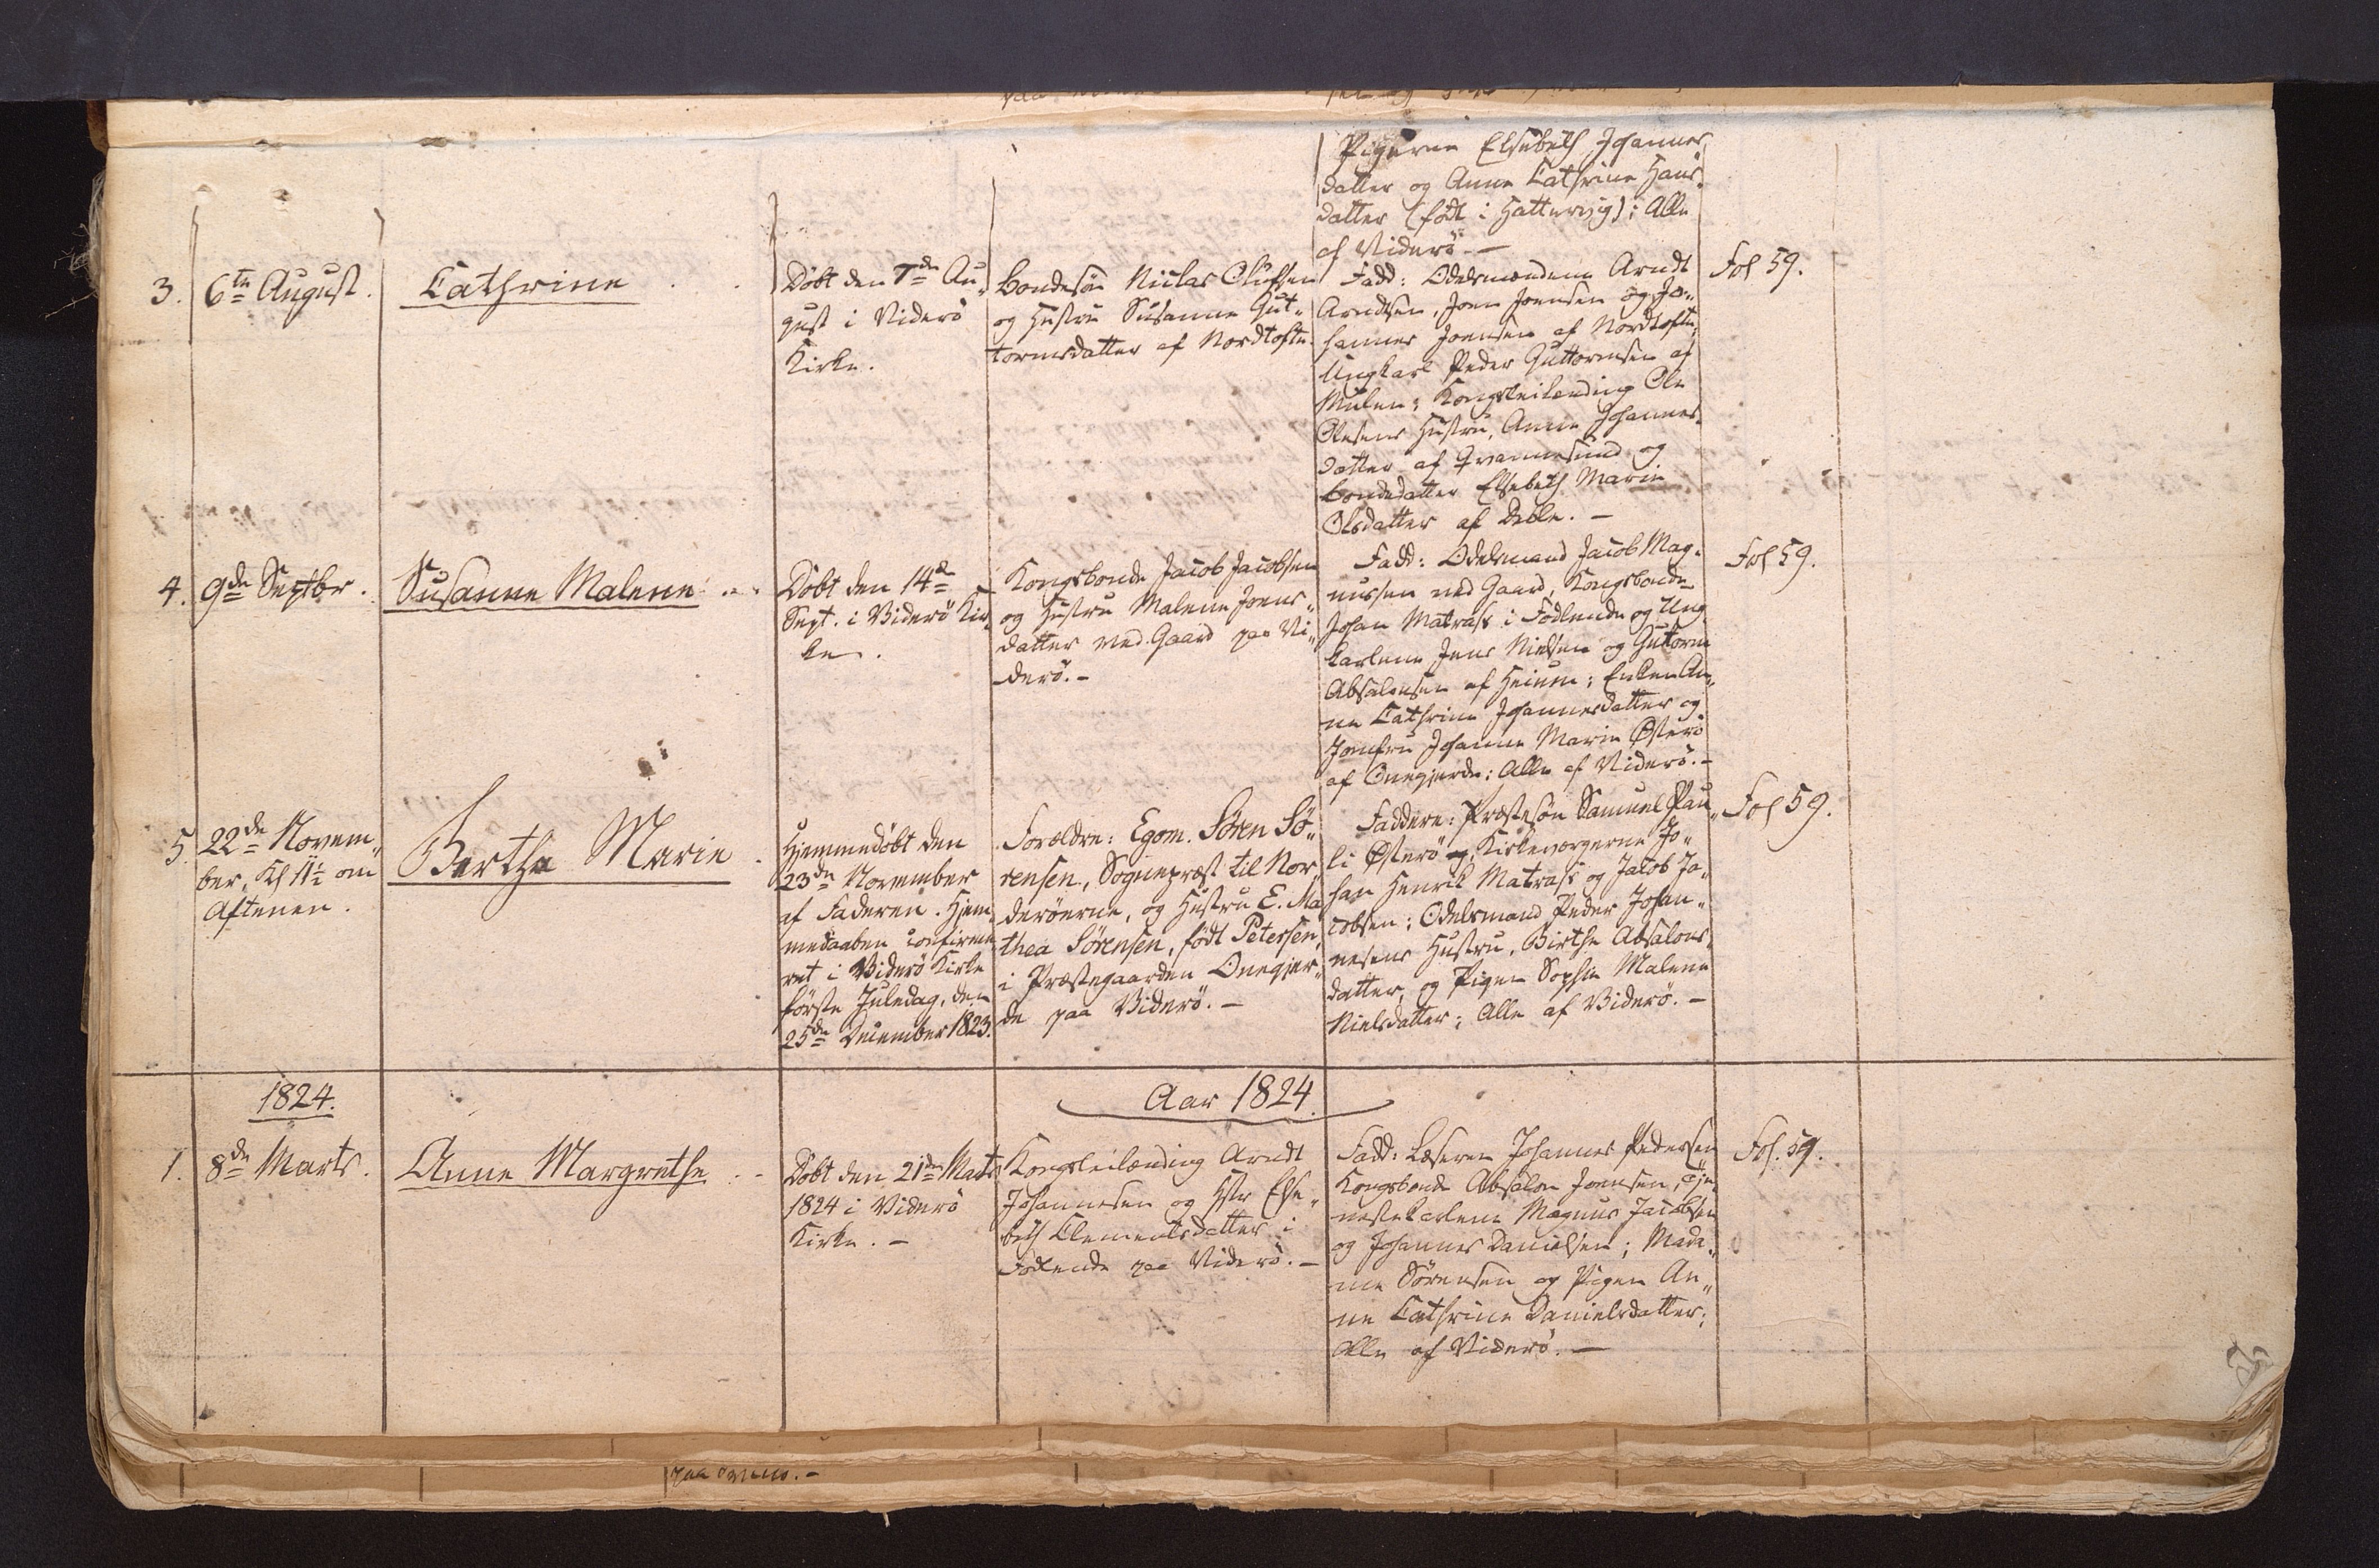 Pigerne Elsebeth Johannes„
datter og Anne Cathrine Hans„
datter (født i Hattervig); Alle
af Viderö. —
3.
6te August.
Cathrine
Döbt den 7de Au„
gust i Viderö
Kirke.
Bondesön Niclas Olufsen
og Hustru Susanne Gut„
tormsdatter af Nordtofte.
Fadd: Odelsmændene Arndt
Arndtsen, Joen Joensen og Jo„
hannes Joensen af Nordtofte,
Ungkarl Peder Guttormsen af
Mulen; Kongsleilænding Ole
Olesens Hustru, Anne Johannes„
datter af Qvannesund og
Bondedatter Elsebeth Marie
Olsdatter af Deble. —
Fol 59.
4.
9de Septbr.
Susanne Malene
Döbt den 14de
Sept. i Viderö Kir„
ke.
Kongsbonde Jacob Jacobsen
og Hustru Malene Joens„
datter ved Gaard paa Vi„
derö. —
Fadd: Odelsmand Jacob Mag„
nussen ved Gaard, Kongsbonde
Johan Matrass i Fodlende og Ung„
karlene Jens Nielsen og Gutorm
Absalonsen af Heimen; Enken An„
ne Cathrine Johannesdatter og
Jomfru Johanne Marie Østerö
af Onegjerde; Alle af Viderö. —
Fol 59.
5.
22de Novem„
ber, Kl 11½ om
Aftenen.
Birthe Marie
Hjemmedöbt den
23de November
af Faderen. Hjem„
medaaben confirme„
ret i Viderö Kirke
förste Juledag, den
25de December 1823.
Forældre: Egom. Sören Sö„
rensen, Sognepræst til Nor„
deröerne, og Hustru E. Ma„
thea Sörensen, født Petersen,
i Præstegaarden Onegjer„
de paa Viderö. —
Faddere: Præstesön Samuel Pau„
li Østerö, Kirkeværgerne Jo„
han Henrik Matrass og Jacob Ja„
cobsen; Odelsmand Peder Johan„
nesens Hustru, Birthe Absalons„
datter, og Pigen Sophie Malene
Nielsdatter; Alle af Viderö. —
Fol 59.
1824.
Aar 1824.
1.
8de Marts.
Anne Margrethe
Döbt den 21de Marts
1824 i Viderö
Kirke. —
Kongsleilænding Arndt
Johannesen og Hstr Else„
beth Clementsdatter i
Fodlende paa Viderö. —
Fadd: Læseren Johannes Pedersen
Kongsbonde Absalon Joensen, Tje„
nestekarlene Magnus Jacobsen
og Johannes Danielsen; Mada„
me Sörensen og Pigen An„
ne Cathrine Danielsdatter;
Alle af Viderö. —
Fol. 59.